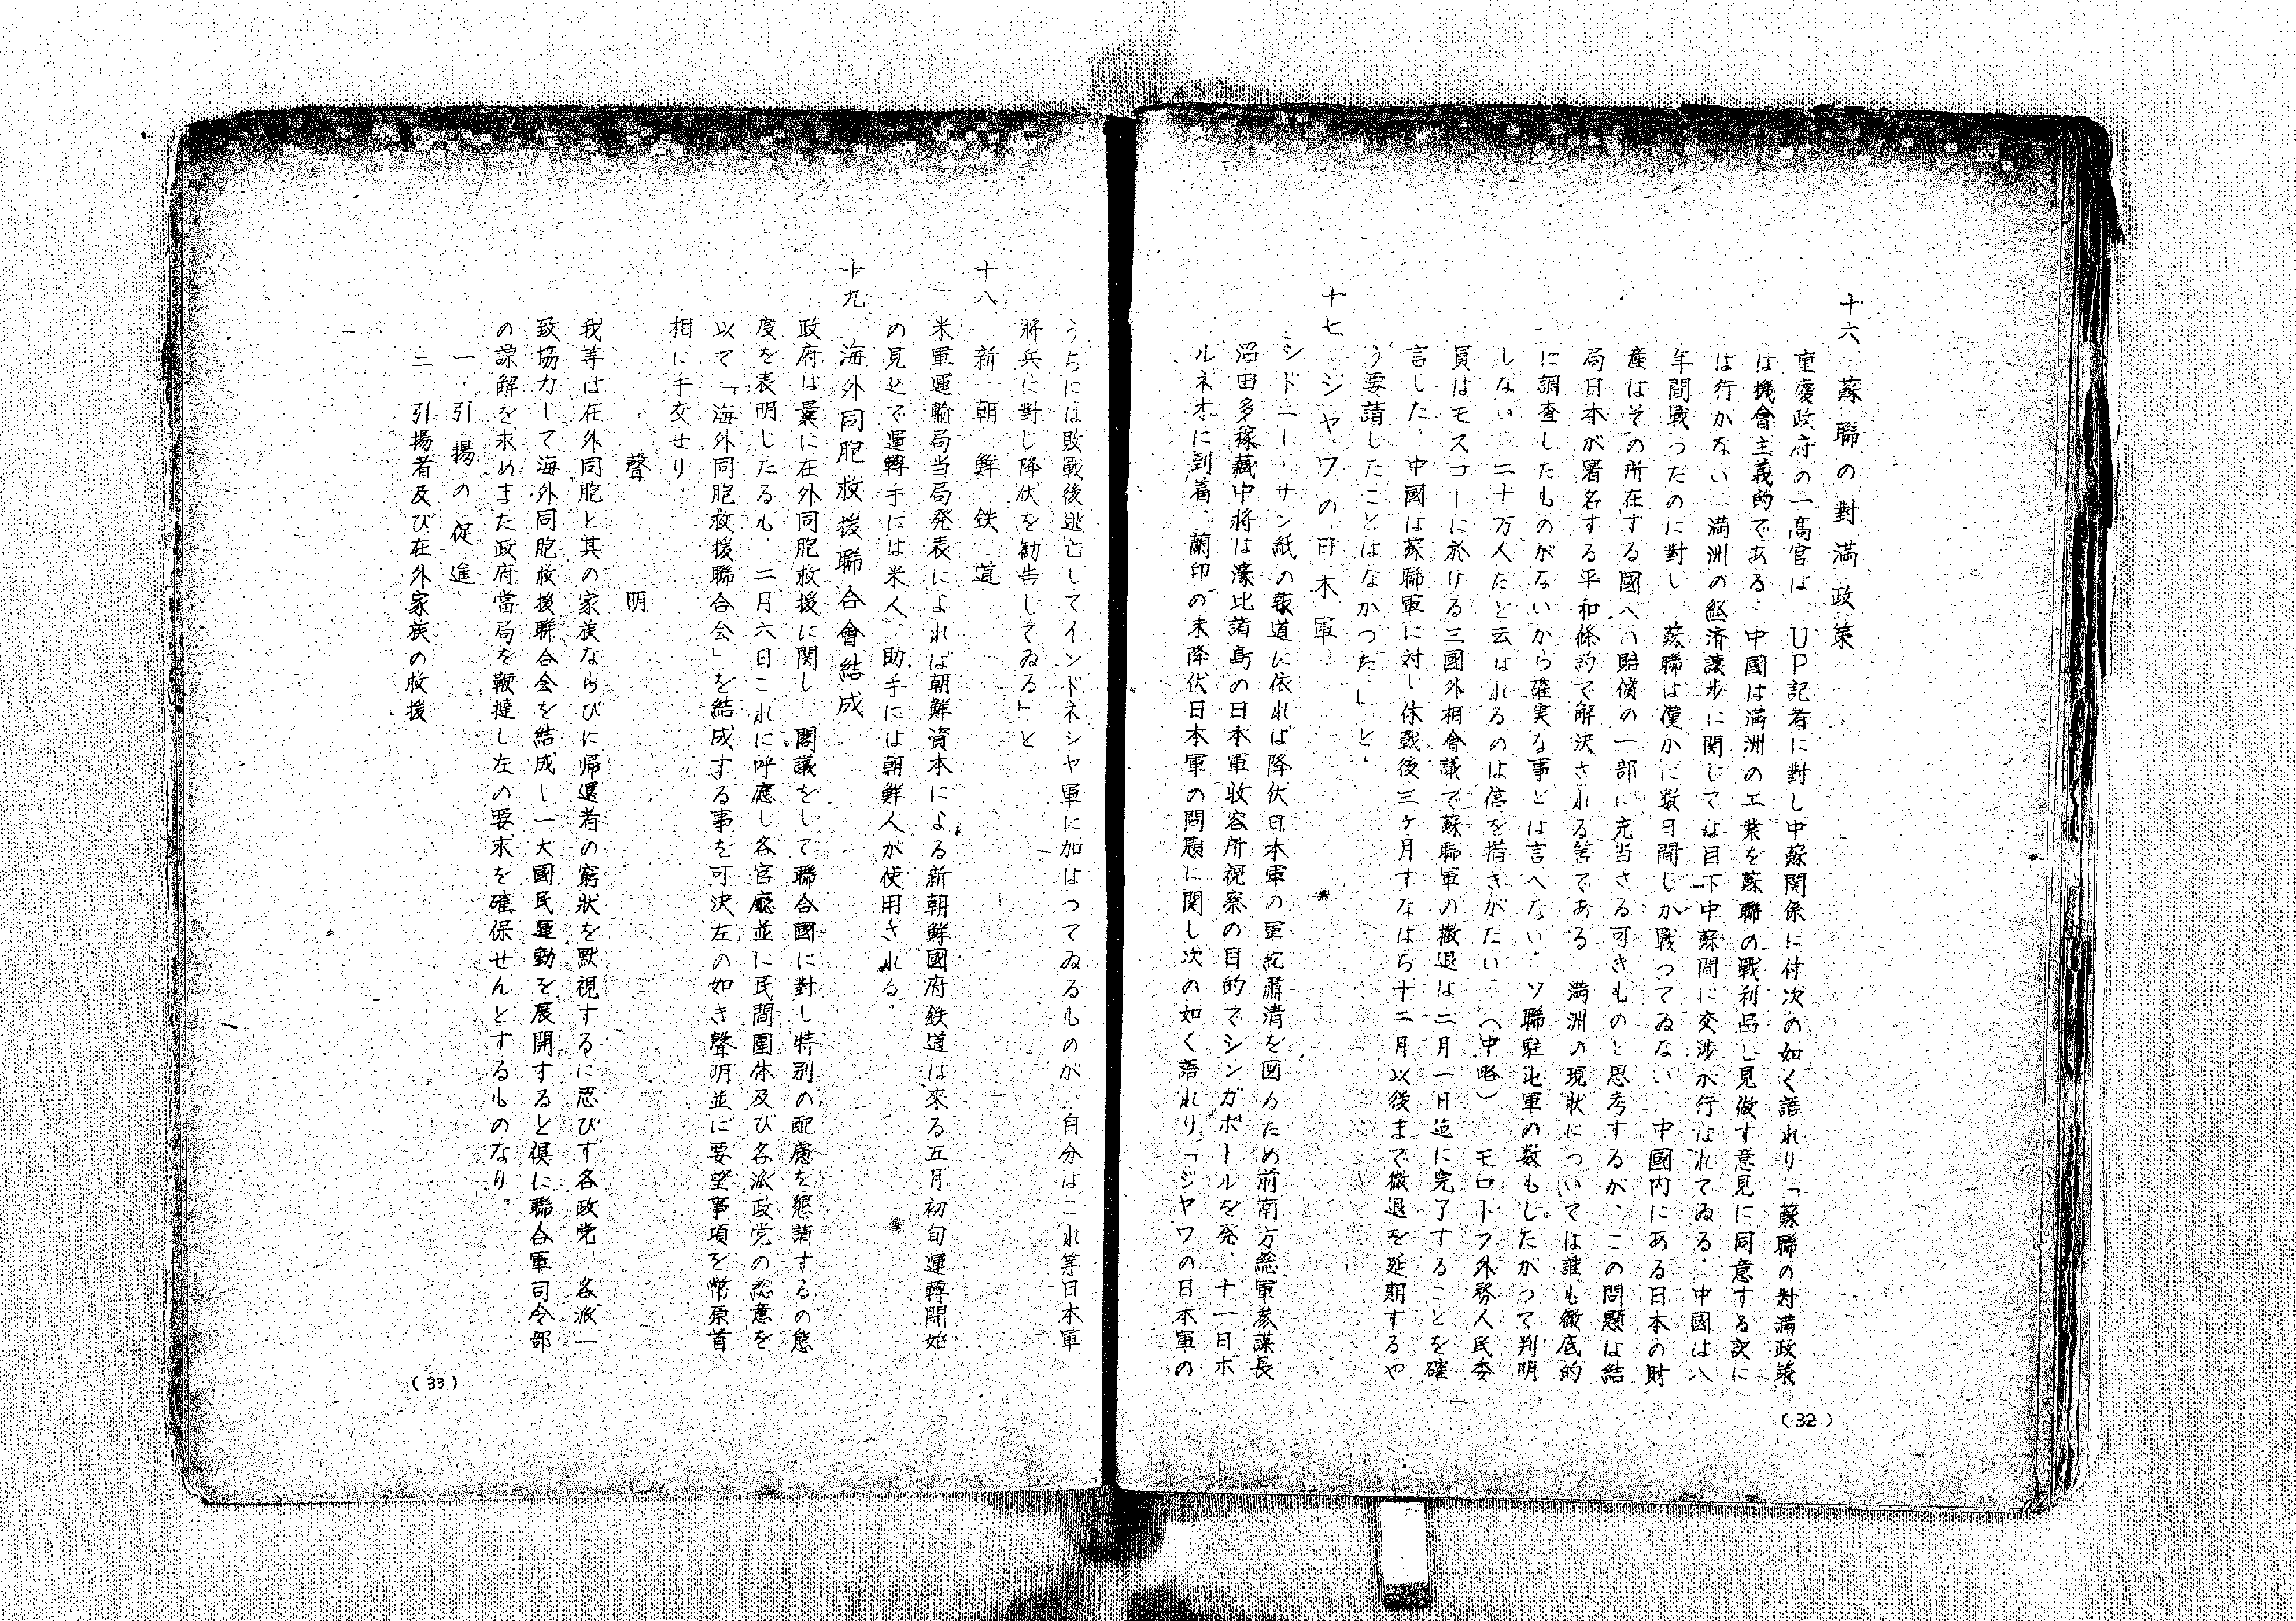 十六 蘇聯の對満政策
重慶政府の一高官は、UP記者に対し中蘇関係に付次の如く語れり「蘇聯の対満政策
は機會主義的である．中國は満洲の工業を蘇聯の戰利品と見做す意見に同意する訳に
は行かない 満洲の経済譲歩に関しては目下中蘇間に交渉が行はれてゐる．中國は八
年間戰つたのに對し 蘇聯は僅かに数日間しか戰つてゐない、中國内にある日本の財
産はその所在する國への賠償の一部に充当さる可きものと思考するが、この問題は結
局日本が署名する平和條約で解決される筈である 満洲の現状については誰も徹底的
に調査したものがないから確実な事とは言へない．ソ聯駐屯軍の数もしたがつて判明
しない、二十万人だと云はれるのは信を措きがたい、（中略）モロトフ外務人民委
員はモスコーに於ける三國外相會議で蘇聯軍の撤退は二月一日迄に完了することを確
言した．中國は蘇聯軍に対し休戰後三ヶ月すなはち十二月以後まで撤退を延期するや
う要請したことはなかつた．」と．
十七 ジヤワの日本軍
シドニー・サン紙の報道に依れば降伏日本軍の軍紀肅清を図るため前南方総軍参謀長
沼田多稼藏中将は濠比諸島の日本軍收容所視察の目的でシンガポールを発、十一日ボ
ルネオに到着、蘭印の未降伏日本軍の問題に関し次の如く語れり「ジヤワの日本軍の
(32)
うちには敗戰後逃亡してインドネシヤ軍に加はつてゐるものが、自分はこれ等日本軍
將兵に對し降伏を勧告してゐる」と
十八 新朝鮮鉄道
米軍運輸局当局発表によれば朝鮮資本による新朝鮮國府鉄道は來る五月初旬運轉開始
の見込で運轉手には米人、助手には朝鮮人が使用される
十九 海外同胞救援聯合會結成
政府は曩に在外同胞救援に関し、閣議をして聯合國に對し特別の配慮を懇請するの態
度を表明したるも、二月六日これに呼應し各官廳並に民間團体及び各派政党の総意を
以て「海外同胞救援聯合会」を結成する事を可決左の如き聲明並に要望事項を幣原首
相に手交せり．
聲明
我等は在外同胞と其の家族ならびに帰還者の窮状を默視するに忍びず各政党 各派一
致協力して海外同胞救援聯合会を結成し一大國民運動を展開すると倶に聯合軍司令部
の諒解を求めまた政府當局を鞭撻し左の要求を確保せんとするものなり。
一．引揚の促進
二 引揚者及び在外家族の救援
(33)